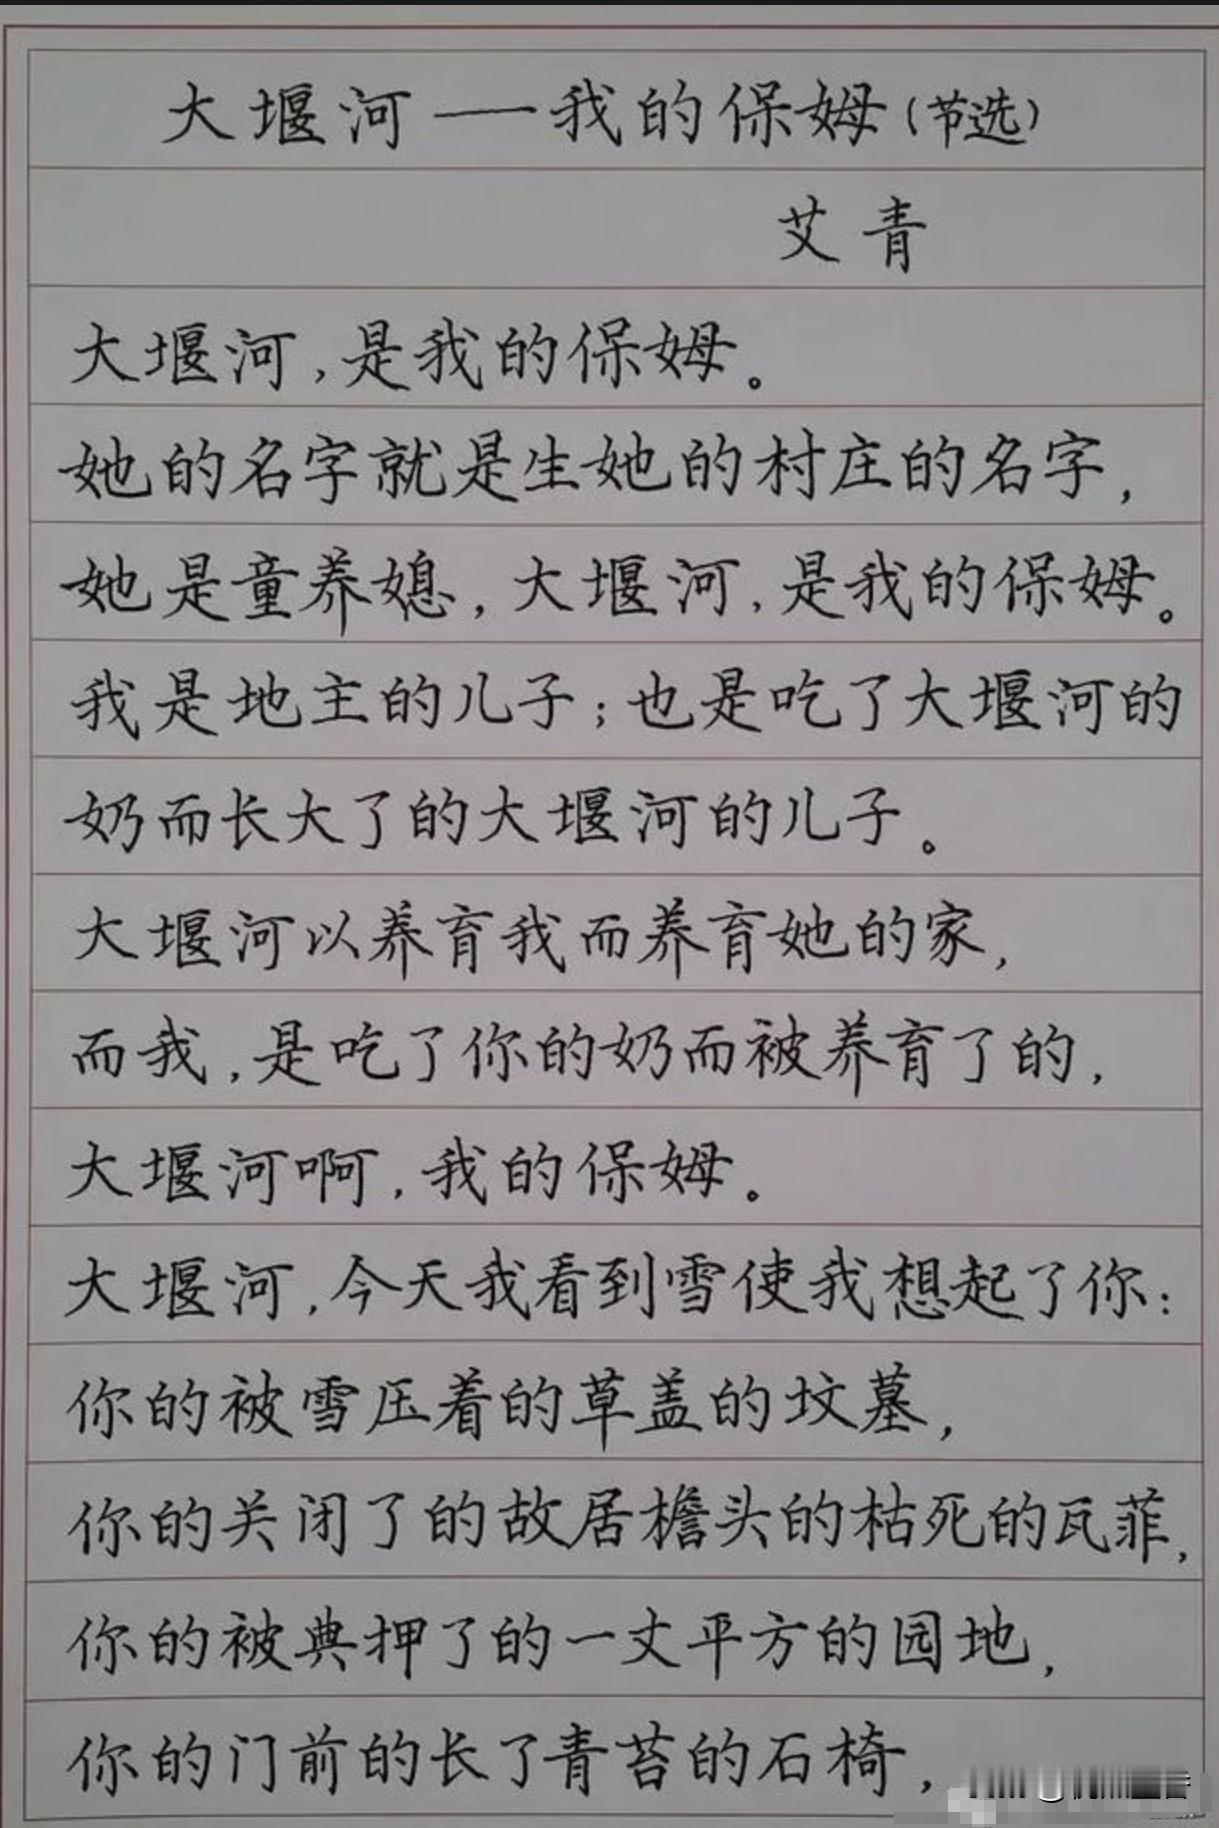 大堰河——我的保姆(节选)
艾青
大堰河,是我的保姆。
她的名字就是生她的村庄的名字,
她是童养媳,大堰河,是我的保姆。
我是地主的儿子;也是吃了大堰河的
奶而长大了的大堰河的儿子。
大堰河以养育我而养育她的家,
而我,是吃了你的奶而被养育了的,
大堰河啊,我的保姆。
大堰河,今天我看到雪使我想起了你:
你的被雪压着的草盖的坟墓,
你的关闭了的故居檐头的枯死的瓦菲,
你的被典押了的一丈平方的园地,
你的门前的长了青苔的石椅,